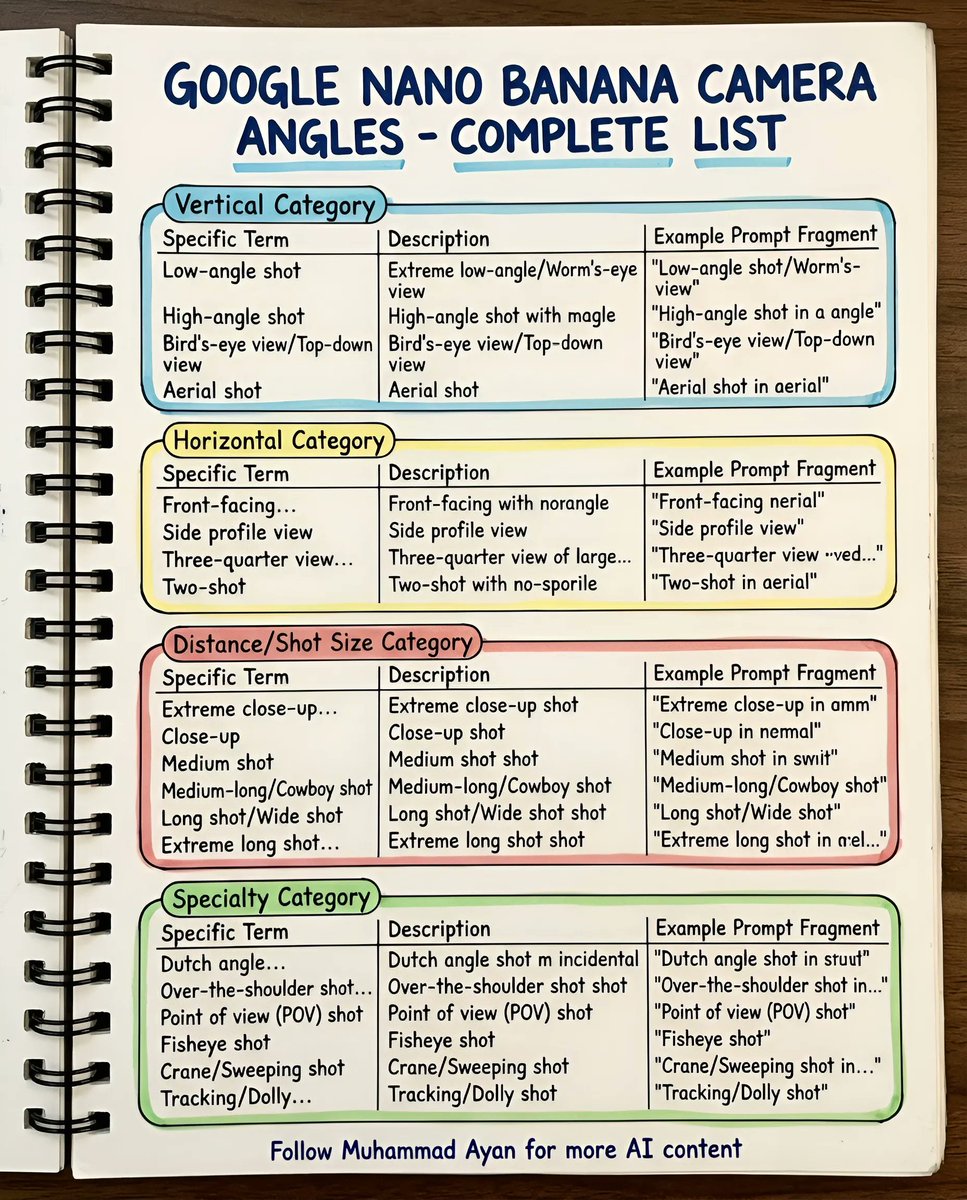 GOOGLE NANO BANANA CAMERA
ANGLES - COMPLETE LIST
Vertical Category
Specific Term Description Example Prompt Fragment
Low-angle shot Extreme low-angle/Worm's-eye view "Low-angle shot/Worm's-view"
High-angle shot High-angle shot with magle "High-angle shot in a angle"
Bird's-eye view/Top-down view Bird's-eye view/Top-down view "Bird's-eye view/Top-down view"
Aerial shot Aerial shot "Aerial shot in aerial"
Horizontal Category
Specific Term Description Example Prompt Fragment
Front-facing... Front-facing with norangle "Front-facing nerial"
Side profile view Side profile view "Side profile view"
Three-quarter view... Three-quarter view of large... "Three-quarter view ..."
Two-shot Two-shot with no-sporile "Two-shot in aerial"
Distance/Shot Size Category
Specific Term Description Example Prompt Fragment
Extreme close-up... Extreme close-up shot "Extreme close-up in amm"
Close-up Close-up shot "Close-up in nemal"
Medium shot Medium shot shot "Medium shot in swit"
Medium-long/Cowboy shot Medium-long/Cowboy shot "Medium-long/Cowboy shot"
Long shot/Wide shot Long shot/Wide shot shot "Long shot/Wide shot"
Extreme long shot... Extreme long shot shot "Extreme long shot in ..."
Specialty Category
Specific Term Description Example Prompt Fragment
Dutch angle... Dutch angle shot m incidental "Dutch angle shot in"
Over-the-shoulder shot... Over-the-shoulder shot shot "Over-the-shoulder shot in..."
Point of view (POV) shot Point of view (POV) shot "Point of view (POV) shot"
Fisheye shot Fisheye shot "Fisheye shot"
Crane/Sweeping shot Crane/Sweeping shot "Crane/Sweeping shot in..."
Tracking/Dolly... Tracking/Dolly shot "Tracking/Dolly shot"
Follow Muhammad Ayan for more AI content